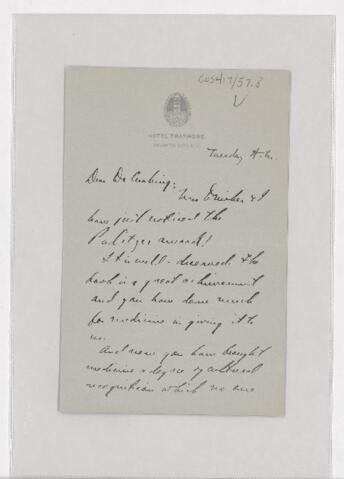 CUSH17/57.8
HOTEL TRAYMORE
ATLANTIC CITY, N.J.
Tuesday A.M.
Dear Dr Cushing:
Mrs & I
have just noticed the
Pulitzer award!
It is well-deserved & the
book is a great achievement
and you have done much
for medicine in giving it to
us.
And now you have brought
medicine a degree of cultural
recognition which no one